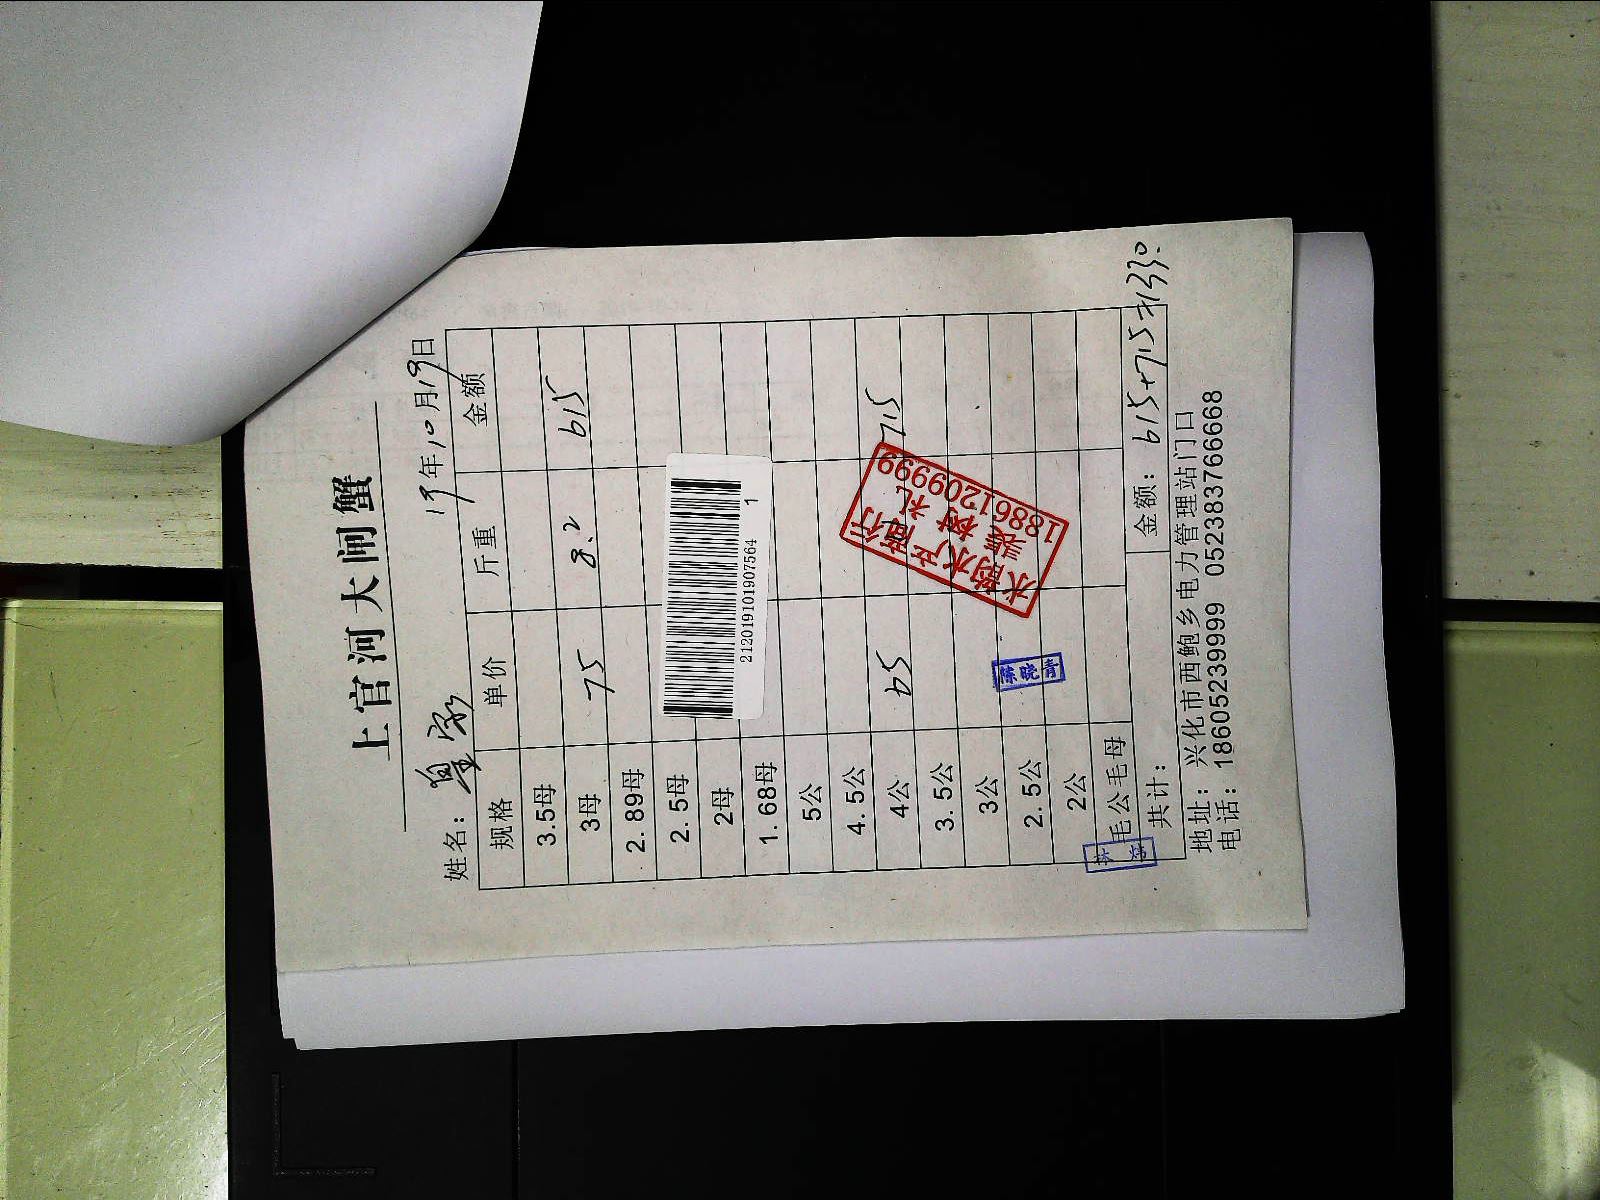 上官河大闸蟹
姓名：皇家 19年10月19日
规格 单价 斤重 金额
3.5母
3母 75 8.2 615
2.89母
2.5母
2母
1.68母
5公
4.5公
4公 65 715
3.5公
3公
2.5公
2公
毛公毛母
共计： 金额：615+715=1330.
地址：兴化市西鲍乡电力管理站门口
电话：18605239999 052383766668
212019101907564 1
水韵水产商行
18861209999
陈晓青